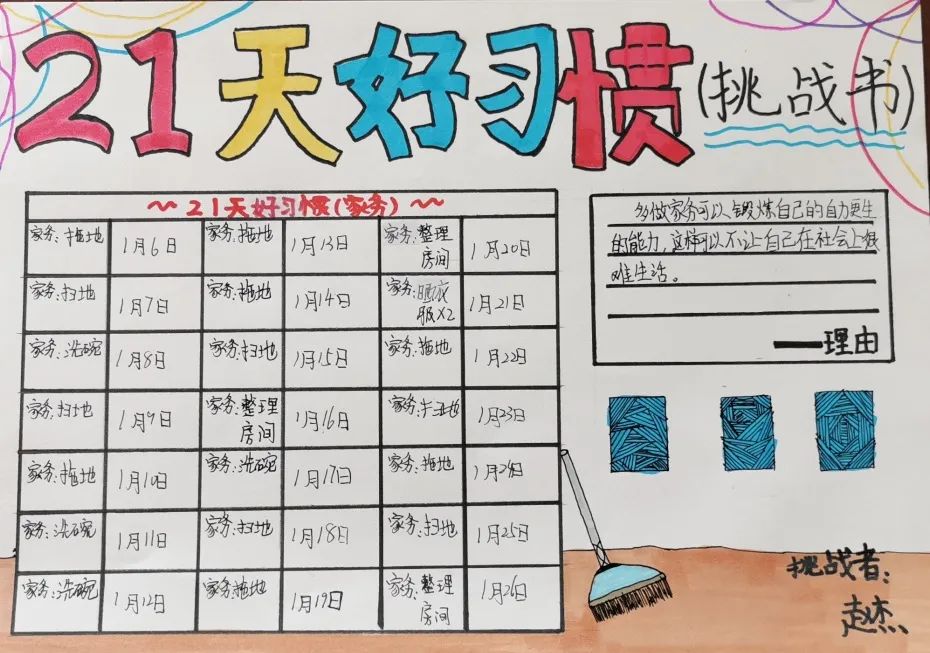 21天好习惯(挑战书)
~~21天好习惯(家务)~~
家务:拖地 1月6日 家务:拖地 1月13日 家务:整理房间 1月20日
家务:扫地 1月7日 家务:拖地 1月14日 家务:晒衣服X2 1月21日
家务:洗碗 1月8日 家务:扫地 1月15日 家务:拖地 1月22日
家务:扫地 1月9日 家务:整理房间 1月16日 家务: 1月23日
家务:拖地 1月10日 家务:洗碗 1月17日 家务:拖地 1月24日
家务:洗碗 1月11日 家务:扫地 1月18日 家务:扫地 1月25日
家务:洗碗 1月12日 家务:拖地 1月19日 家务:整理房间 1月26日
多做家务可以锻炼自己的自力更生
的能力,这样可以不让自己在社会上很
难生活。
——理由
挑战者:
赵杰